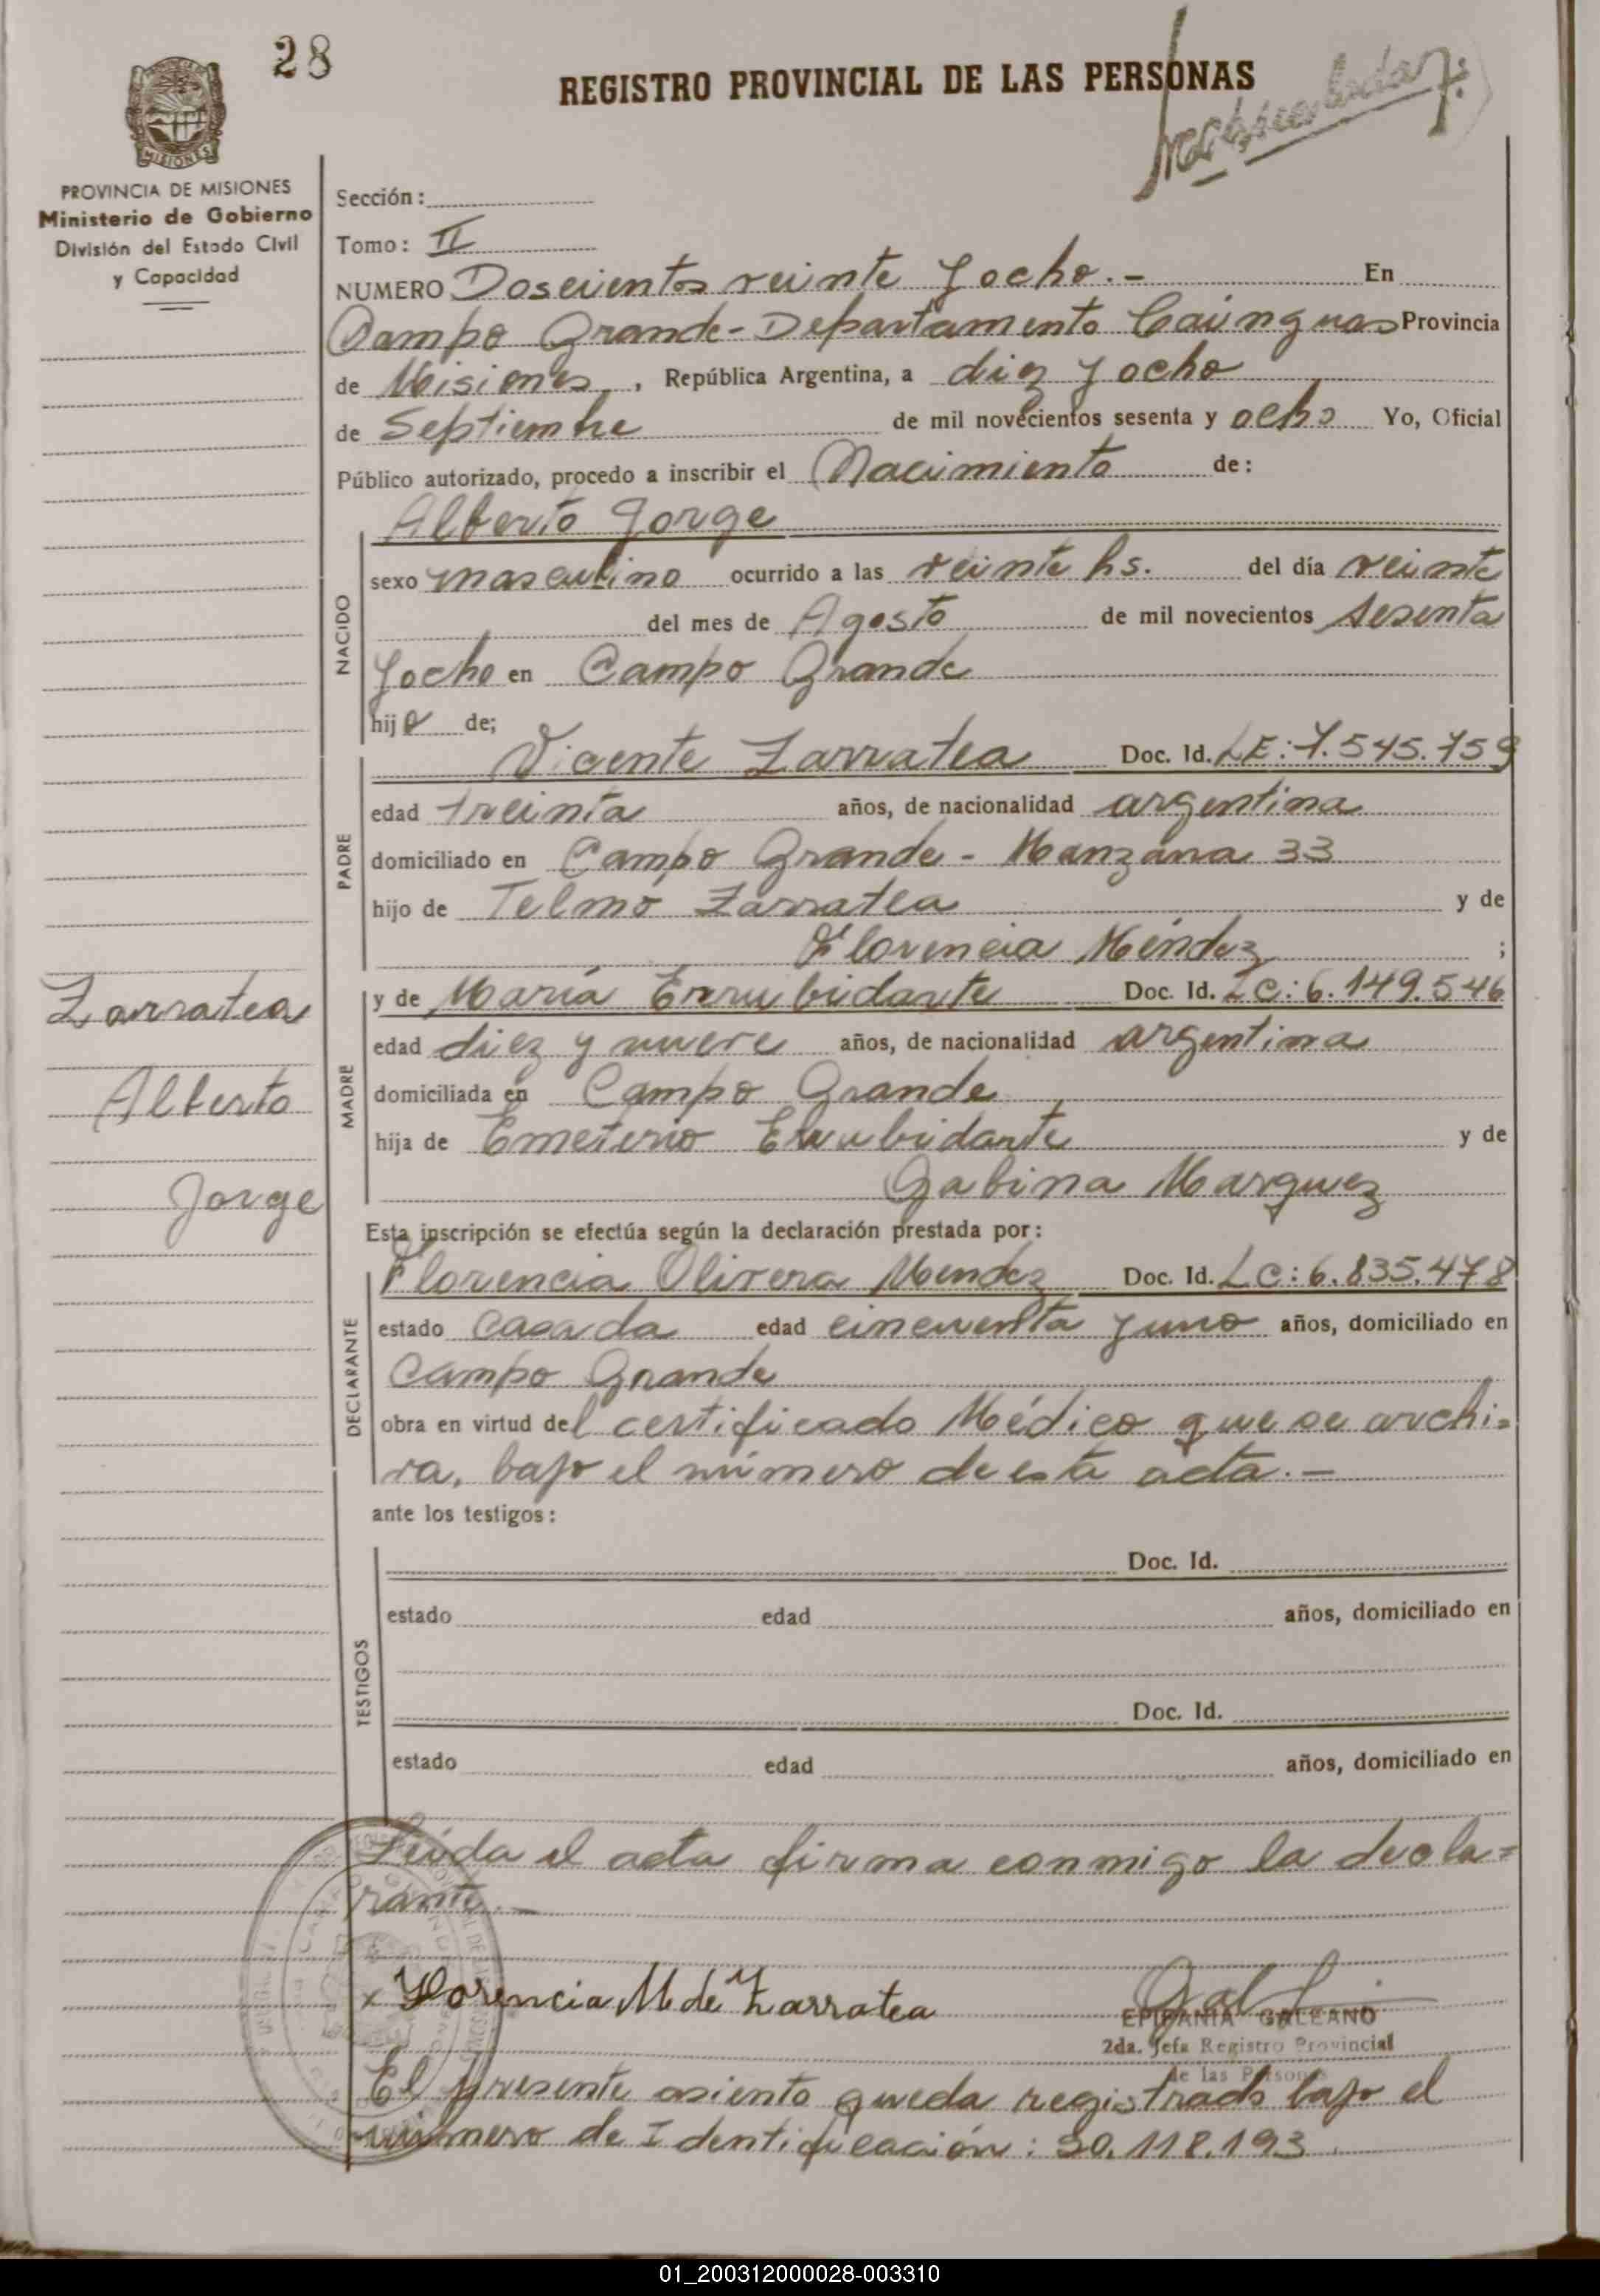 28
REGISTRO PROVINCIAL DE LAS PERSONAS
MISIONES
PROVINCIA DE MISIONES
Ministerio de Gobierno
División del Estado Civil
y Capacidad
Sección:
Tomo: II
NUMERO Doscientos veinte y ocho.- En
Campo Grande - Departamento Cainguas Provincia
de Misiones, República Argentina, a diez y ocho
de Septiembre de mil novecientos sesenta y ocho Yo, Oficial
Público autorizado, procedo a inscribir el Nacimiento de:
Alberto Jorge
NACIDO
sexo masculino ocurrido a las veinte hs. del día veinte
del mes de Agosto de mil novecientos sesenta
y ocho en Campo Grande
hijo de;
PADRE
Vicente Zarratea Doc. Id. LE: 7.545.759
edad treinta años, de nacionalidad argentina
domiciliado en Campo Grande - Manzana 33
hijo de Telmo Zarratea y de
Florencia Méndez ;
Zarratea
Alberto
Jorge
MADRE
y de María Errubidarte Doc. Id. LC: 6.149.546
edad diez y nueve años, de nacionalidad argentina
domiciliada en Campo Grande
hija de Emeterio Errubidarte y de
Gabina Marquez
Esta inscripción se efectúa según la declaración prestada por:
DECLARANTE
Florencia Olivera Mendez Doc. Id. LC: 6.835.478
estado casada edad cincuenta y uno años, domiciliado en
Campo Grande
obra en virtud del certificado Médico que se archi=
va, bajo el número de esta acta.-
ante los testigos:
TESTIGOS
Doc. Id.
estado edad años, domiciliado en
Doc. Id.
estado edad años, domiciliado en
Leída el acta firma conmigo la decla=
rante.-
x Florencia M de Zarratea
EPIFANIA GALEANO
2da. Jefa Registro Provincial
de las Personas
El presente asiento queda registrado bajo el
número de Identificación: 20.118.193
01_200312000028-003310